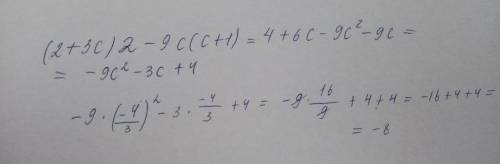 (2+3c)2-9c(c+1)=4+6c-9c²-9c=
= -9c²-3c+4
-9·(-4/3)²-3·-4/3+4= -9·16/9+4+4=-16+4+4=
= -8